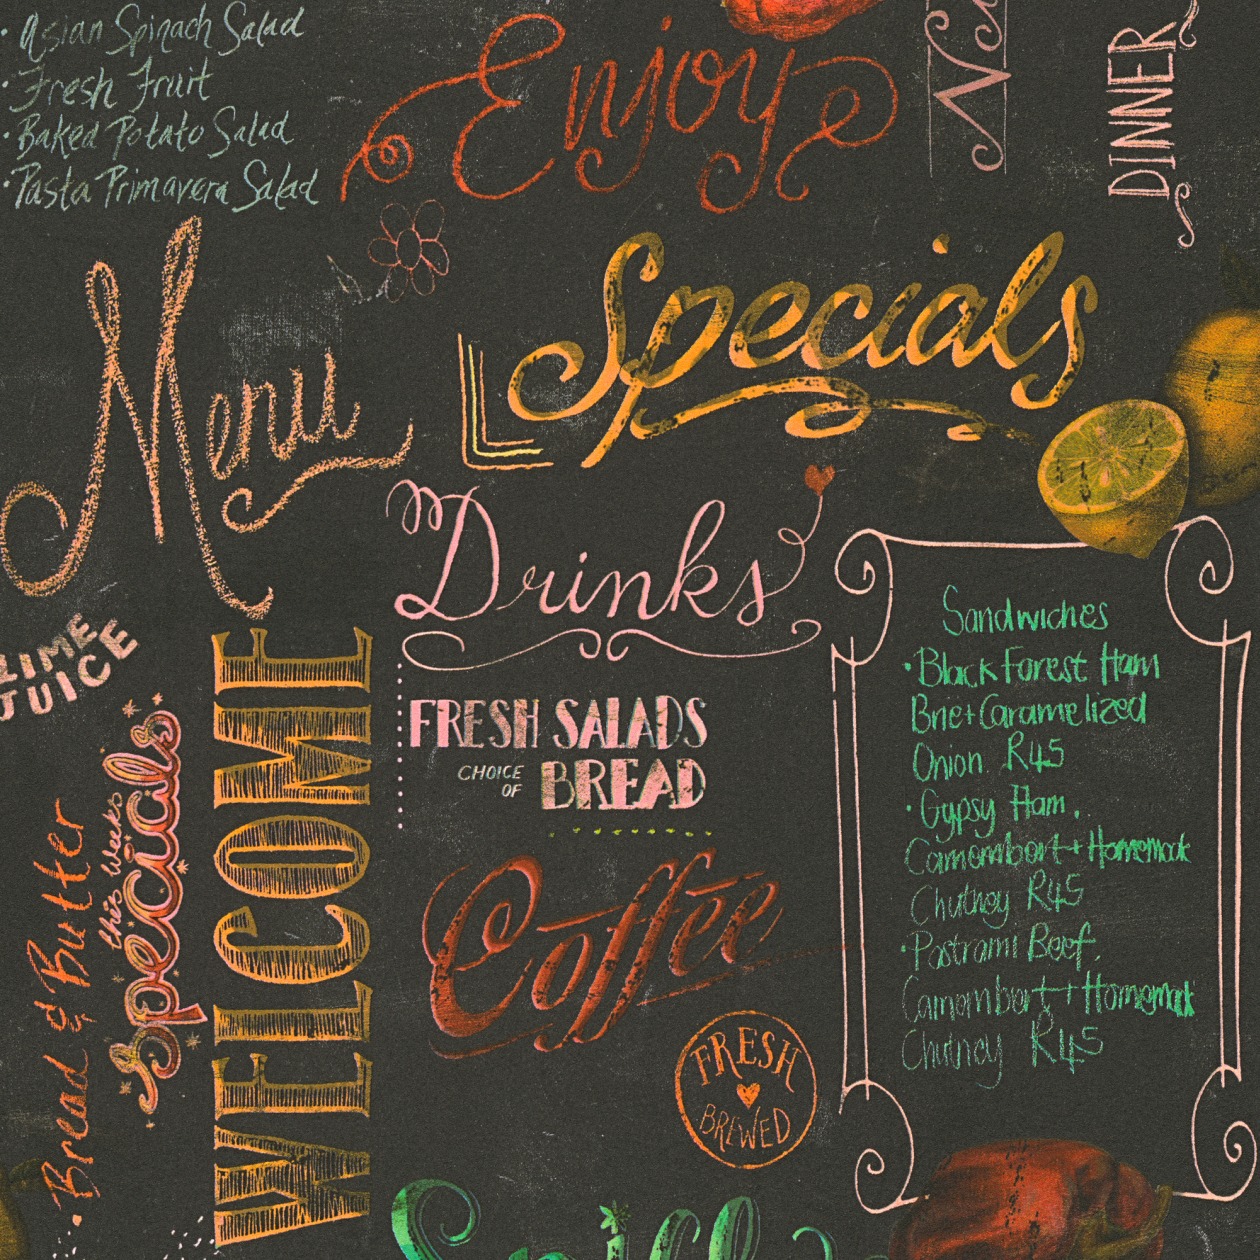 · Asian Spinach Salad
· Fresh Fruit
· Baked Potato Salad
· Pasta Primavera Salad
Enjoy
DINNER
Menu
Specials
Drinks
LIME
JUICE
FRESH SALADS
CHOICE
OF
BREAD
WELCOME
this weeks
specials
· Bread & Butter
Coffee
FRESH
BREWED
Sandwiches
· Black Forest Ham
Brie + Caramelized
Onion R45
· Gypsy Ham.
Camembert + Homemade
Chutney R45
· Pastrami Beef.
Camembert + Homemade
Chutney R45